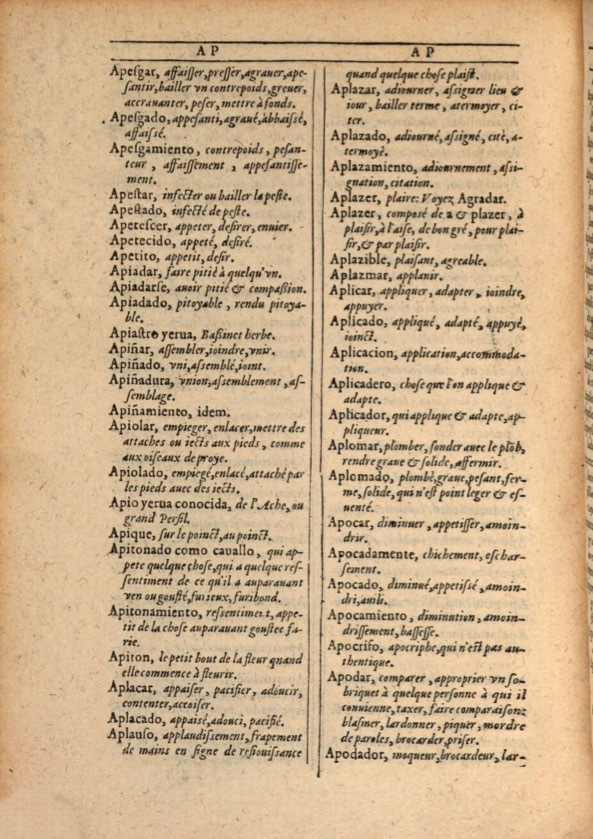 AP
Apesgar, affaisser, presser, agrauer, ape-
santir, bailler vn contrepoids, greuer,
accrauanter, peser, mettre à fonds.
Apesgado, appesanti, agraué, abbaissé,
affaissé.
Apesgamiento, contrepoids, pesan-
teur, affaissement, appesantisse-
ment.
Apestar, infecter ou bailler la peste.
Apestado, infecté de peste.
Apetescer, appeter, desirer, enuier.
Apetecido, appeté, desiré.
Apetito, appetit, desir.
Apiadar, faire pitié à quelqu'vn.
Apiadarse, auoir pitié & compassion.
Apiadado, pitoyable, rendu pitoya-
ble.
Apiastro yerua, Bassinet herbe.
Apiñar, assembler, ioindre, vnir.
Apiñado, vni, assemblé, ioint.
Apiñadura, vnion, assemblement, as-
semblage.
Apiñamiento, idem.
Apiolar, empieger, enlacer, mettre des
attaches ou iects aux pieds, comme
aux oiseaux de proye.
Apiolado, empiegé, enlacé, attaché par
les pieds auec des iects.
Apio yerua conocida, de l'Ache, ou
grand Persil.
Apique, sur le poinct, au poinct.
Apitonado como cauallo, qui ap-
pete quelque chose, qui a quelque res-
sentiment de ce qu'il a auparauant
veu ou gousté, furieux, furibond.
Apitonamiento, ressentiment, appe-
tit de la chose auparauant goustee fu-
rie.
Apiton, le petit bout de la fleur quand
elle commence à fleurir.
Aplacar, appaiser, pacifier, adoucir,
contenter, accoiser.
Aplacado, appaisé, adouci, pacifié.
Aplauso, applaudissement, frapement
de mains en signe de resiouissance
AP
quand quelque chose plaist.
Aplazar, adiourner, assigner lieu &
iour, bailler terme, atermoyer, ci-
ter.
Aplazado, adiourné, assigné, cité, a-
termoyé.
Aplazamiento, adiournement, assi-
gnation, citation.
Aplazer, plaire: Voyez Agradar.
Aplazer, composé de a & plazer, à
plaisir, à l'aise, de bon gré, pour plai-
sir, & par plaisir.
Aplazible, plaisant, agreable.
Aplazmar, applanir.
Aplicar, appliquer, adapter, ioindre,
appuyer.
Aplicado, appliqué, adapté, appuyé,
ioinct.
Aplicacion, application, accommoda-
tion.
Aplicadero, chose que l'on applique &
adapte.
Aplicador, qui applique & adapte, ap-
pliqueur.
Aplomar, plomber, sonder auec le plõb,
rendre graue & solide, affermir.
Aplomado, plombé, graue, pesant, fer-
me, solide, qui n'est point leger & es-
uenté.
Apocar, diminuer, appetisser, amoin-
drir.
Apocadamente, chichement, eschar-
sement.
Apocado, diminué, appetissé, amoin-
dri, auili.
Apocamiento, diminution, amoin-
drissement, bassesse.
Apocrifo, apocriphe, qui n'est pas au-
thentique.
Apodar, comparer, approprier vn so-
briquet à quelque personne à qui il
conuienne, taxer, faire comparaisons
blasmer, lardonner, piquer, mordre
de paroles, brocarder, priser.
Apodador, moqueur, brocardeur, lar-